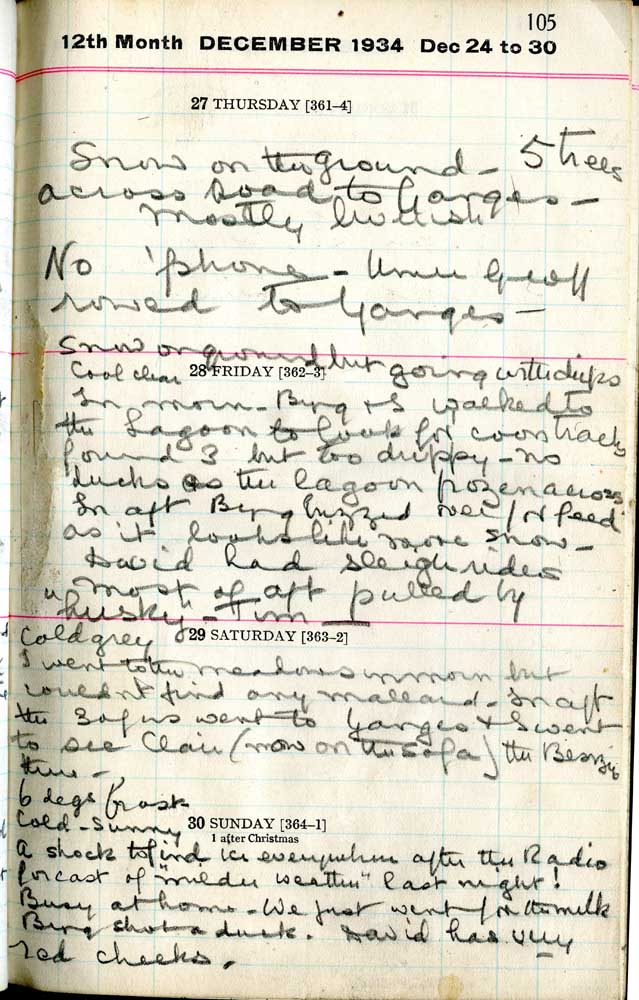 105
12th Month DECEMBER 1934 Dec 24 to 30
27 THURSDAY [361–4]
Snow on the ground – 5 trees
across road to Ganges –
mostly
No 'phone – Geoff
rowed to Ganges –
Snow on ground but going with drips
Cool clear 28 FRIDAY [362–3]
In morn – Berg & I walked to
the Lagoon to look for coon tracks
found 3 but too drippy – no
ducks as the lagoon frozen across
In aft Berg buzzed over for feed
as it looks like more snow –
David had sleigh rides
most of aft pulled by
husky – Tim
Cold grey 29 SATURDAY [363–2]
I went to the meadows in morn but
couldn't find any mallard – In aft
the 3 of us went to Ganges & I went
to see Clair (now on the sofa) the
there –
6 degs frost
Cold – Sunny 30 SUNDAY [364–1]
1 after Christmas
A shock to find ice everywhere after the Radio
forcast of "milder weather" last night!
Busy at home – We just went for the milk
Berg shot a duck. David has very
red cheeks.